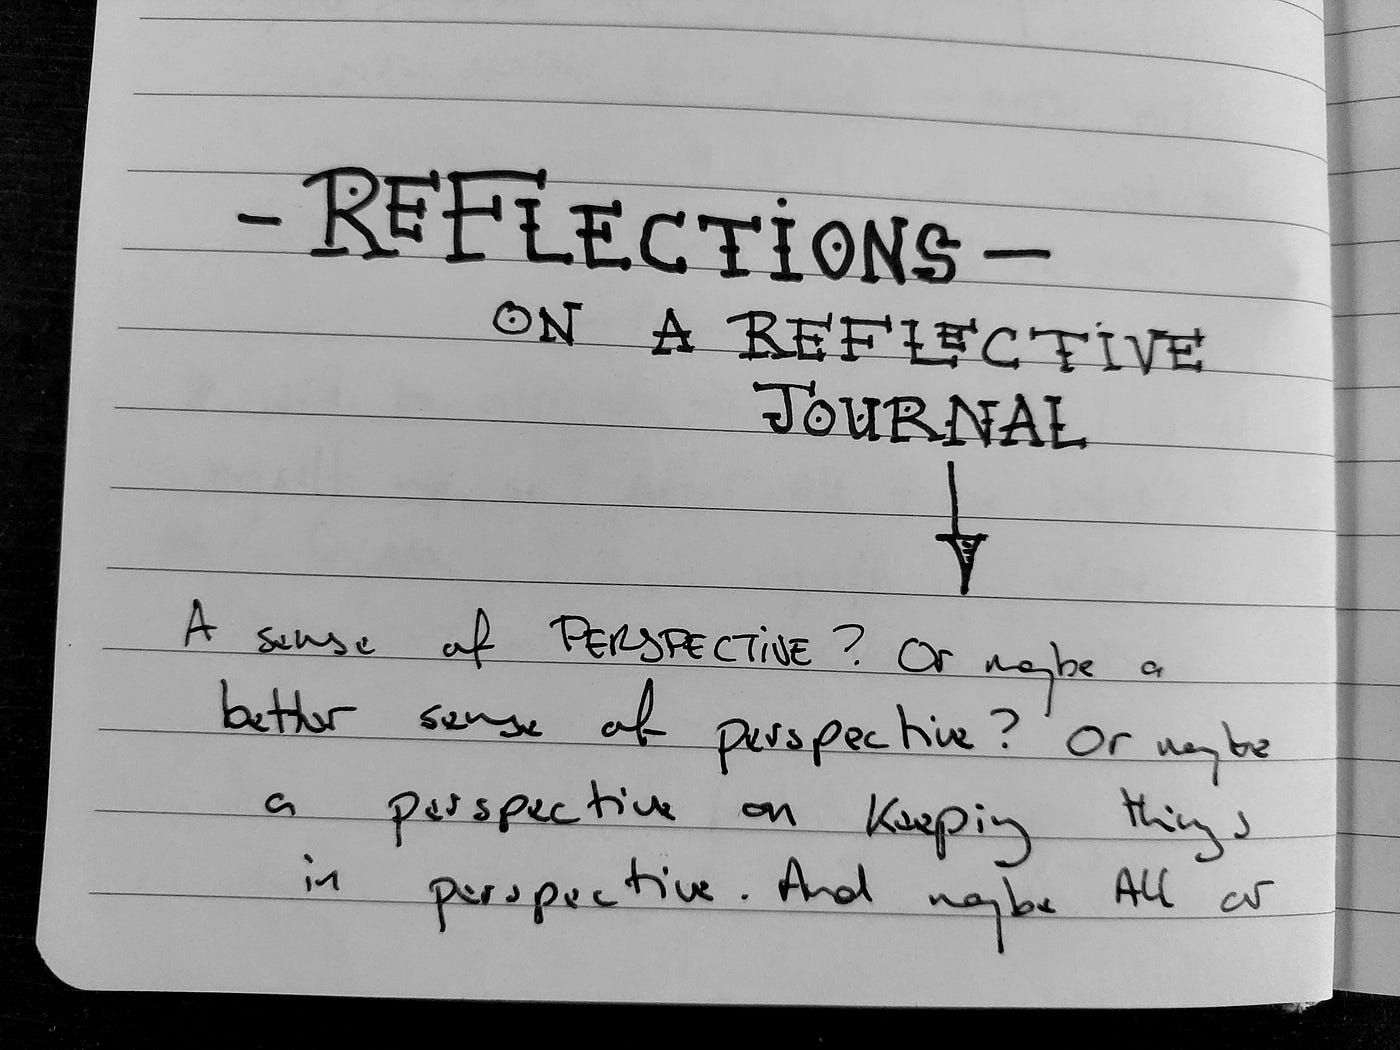 - REFLECTIONS -
ON A REFLECTIVE
JOURNAL
A sense of PERSPECTIVE? Or maybe a
better sense of perspective? Or maybe
a perspective on keeping things
in perspective. And maybe All or